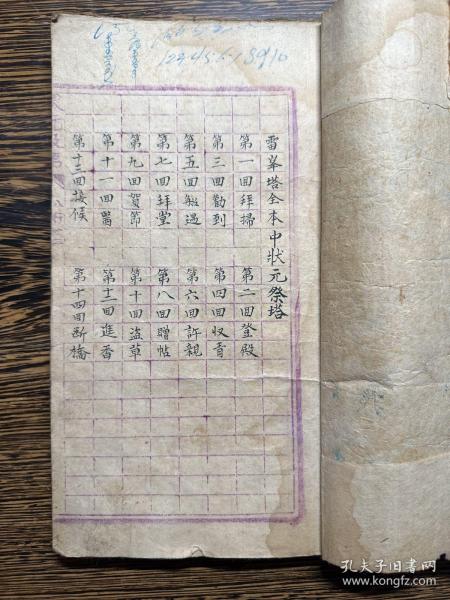 雷峯塔全本中狀元祭塔
第一回拜掃 第二回登殿
第三回勸到 第四回収青
第五回舩遇 第六回許親
第七回拜堂 第八回贈帖
第九回賀節 第十回盜草
第十一回醫 第十二回進香
第十三回接候 第十四回斷橋
12345678910
孔夫子旧书网
www.kongfz.com